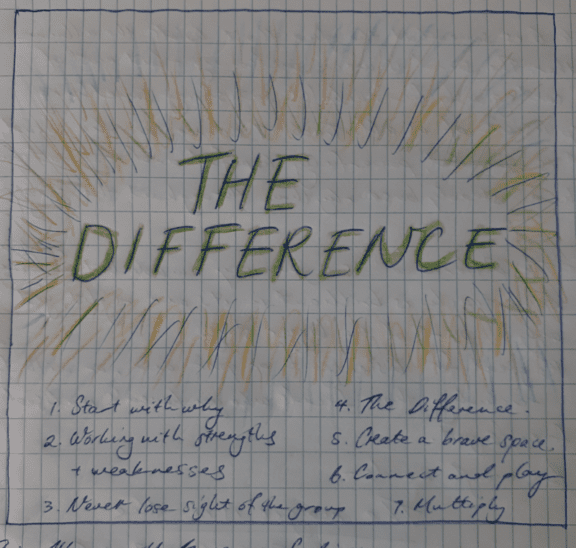 THE
DIFFERENCE
1. Start with why
2. Working with strengths
+ weaknesses
3. Never lose sight of the group
4. The Difference.
5. Create a brave space.
6. Connect and play
7. Multiply